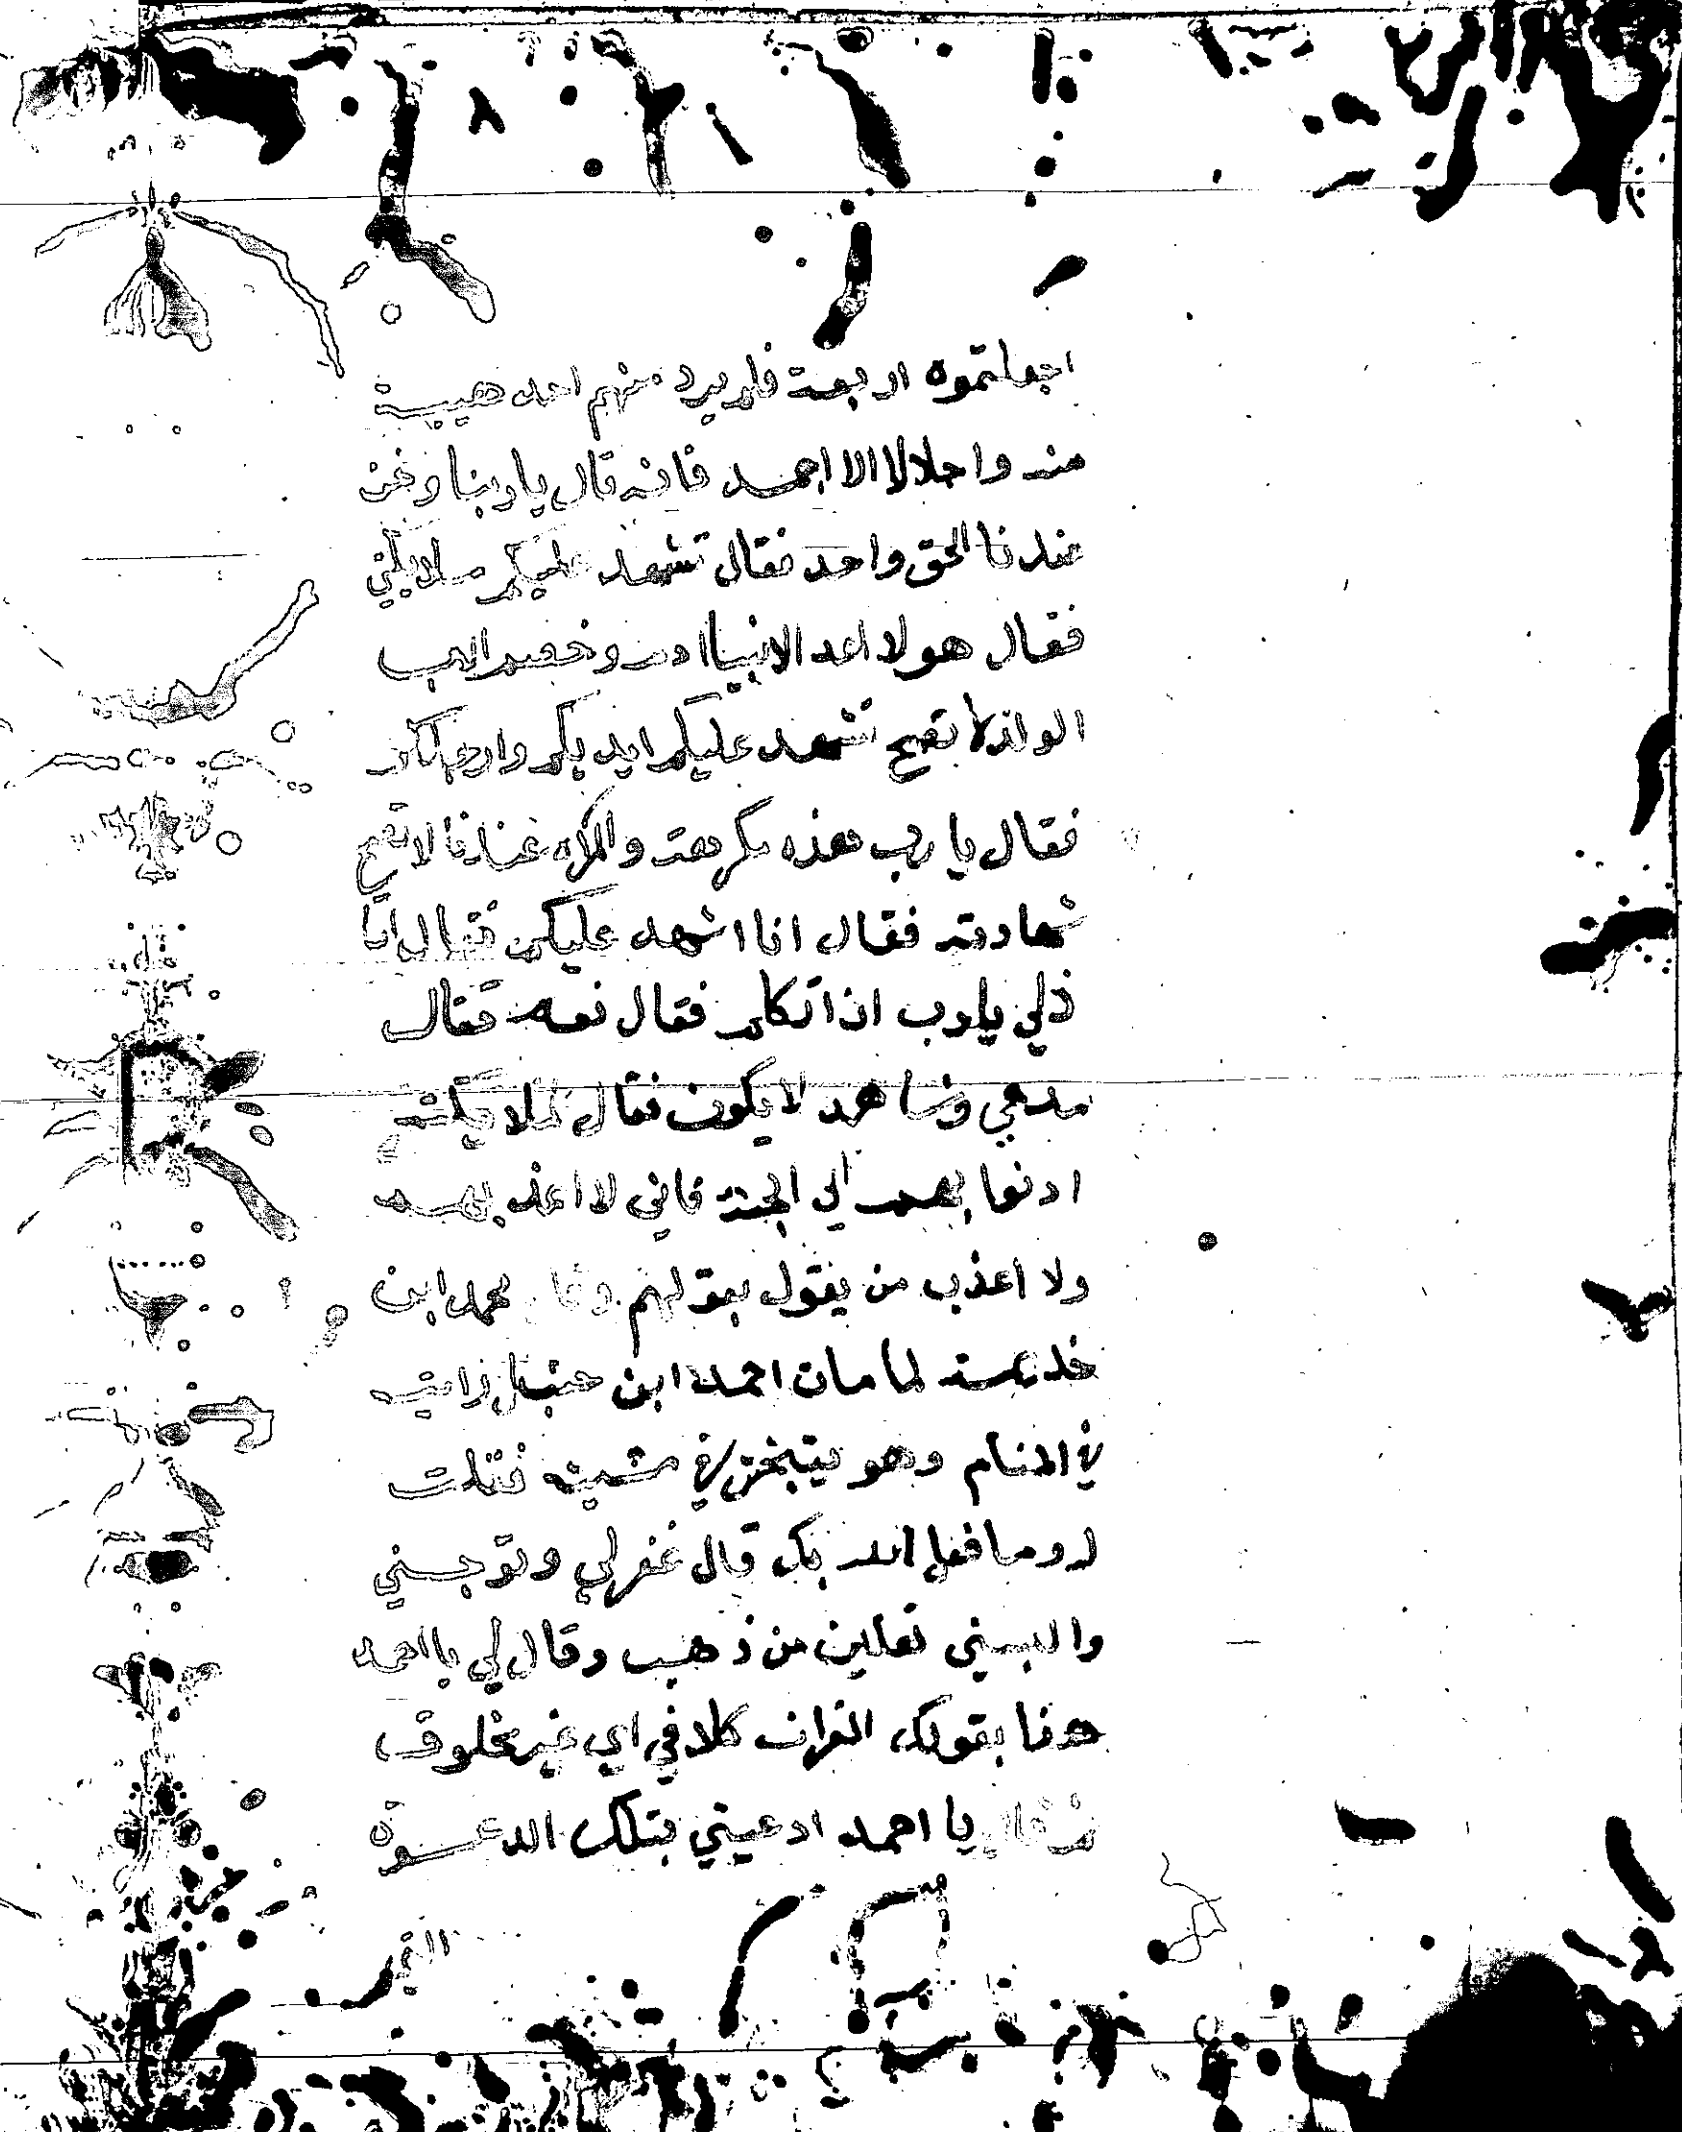 اجعلتموه اربعة فلم يرد منهم احد هيبة
منه واجلالا الا احمد فانه قال يا ربنا ونحن
عندنا الحق واحد فقال تشهد عليكم ملايكتي
فقال هولا اعد الانبيا ادم وخصم الاب
الولد لا تصح تشهد عليكم ايديكم وارجلكم
فقال يا رب هذه مكرهة والمكره عندنا لا تصح
شهادته فقال انا اشهد عليكم فقال ايا
ذلي يا رب ان اتكلم فقال نعم فقال
مدعي وشاهد لا يكون فقال لملايكته
ادنوا بهم الي الجنة فاني لا اعذبهم
ولا اعذب من يقول بقولهم وقال محمد ابن
خذيمة لما مات احمد ابن حنبل رايته
في المنام وهو يتبختر في مشيته فقلت
له وما فعل الله بك قال غفر لي وتوجني
والبسني نعلين من ذهب وقال لي يا احمد
هونا بقولك القران كلامي اي غير مخلوق
ثم قال يا احمد ادعيني بتلك الدعوة
التي